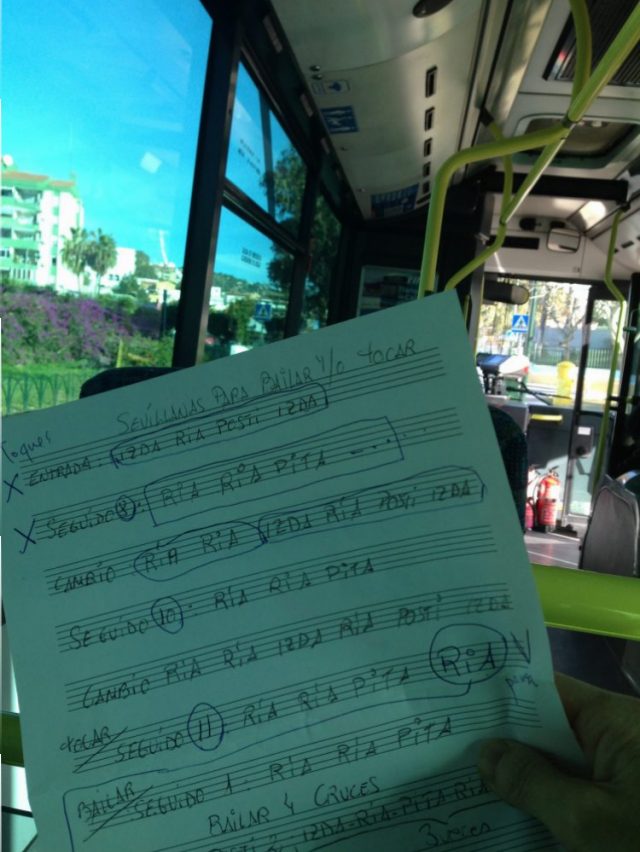 SEVILLANAS PARA BAILAR Y/O TOCAR
Toques
X ENTRADA: IZDA RIA POSTI IZDA
X SEGUIDO 8: RIA RIA PITA
CAMBIO RIA RIA IZDA RIA POSTI IZDA
SEGUIDO 10: RIA RIA PITA
CAMBIO RIA RIA IZDA RIA POSTI IZDA
TOCAR SEGUIDO 11: RIA RIA PITA RIA
BAILAR SEGUIDO 1: RIA RIA PITA
BAILAR Y CRUCES
IZDA-RIA-PITA-RIA
3 veces